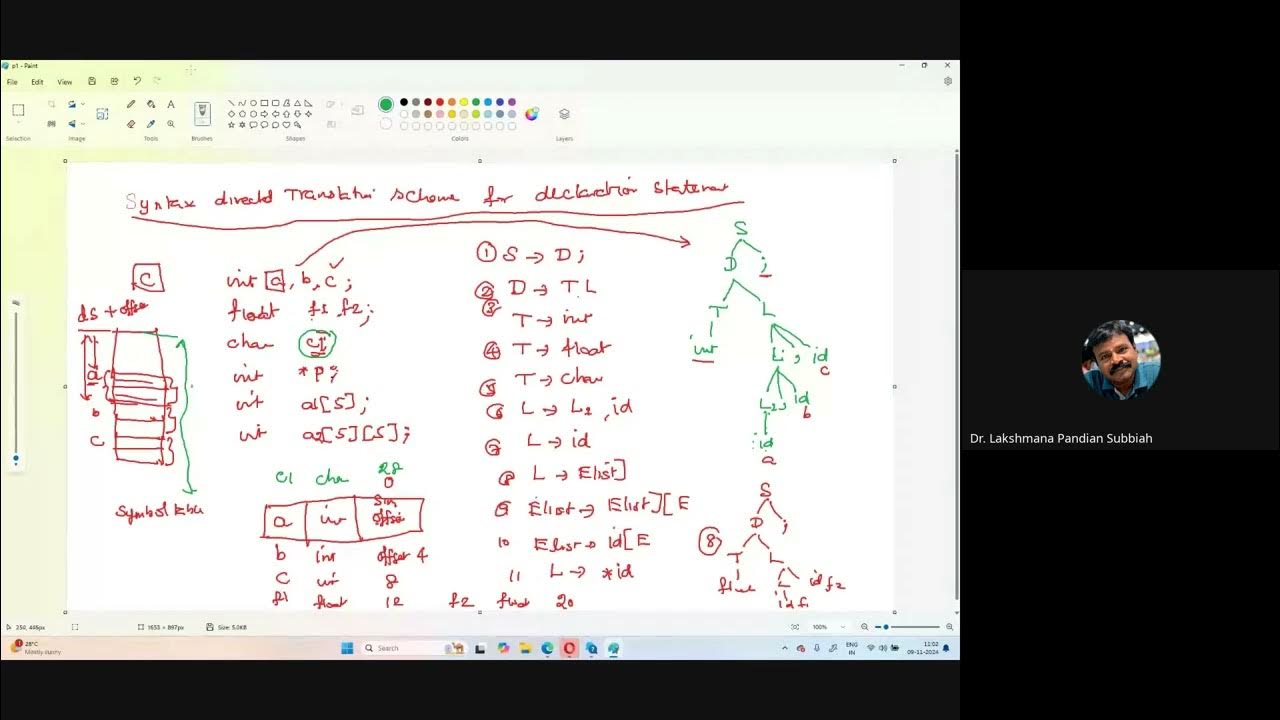 p1 - Paint
File Edit View
Selection Image Tools Brushes Shapes Colors Layers
Syntax directed Translation scheme for declaration Statement
C
ds + offset
a
b
c
Symbol
int a, b, c;
float f1, f2;
char c1
int *p;
int a1[5];
int a2[5][5];
c1 char 28
0
a int offset
b int offset 4
c int 8
f1 float 12 f2 float 20
① S → D ;
② D → T L
③ T → int
④ T → float
⑤ T → char
⑥ L → L2, id
⑦ L → id
8 L → Elist]
9 Elist → Elist][E
10 Elist → id[E
11 L → *id
S
D ;
T L
int L1 , id
c
L2 , id
b
id
a
S
⑧ D ;
T L
float L id f2
id f1
250, 446px 1653 × 897px Size: 5.0KB 100%
28°C
Mostly sunny
Search
ENG
IN
11:02
09-11-2024
Dr. Lakshmana Pandian Subbiah